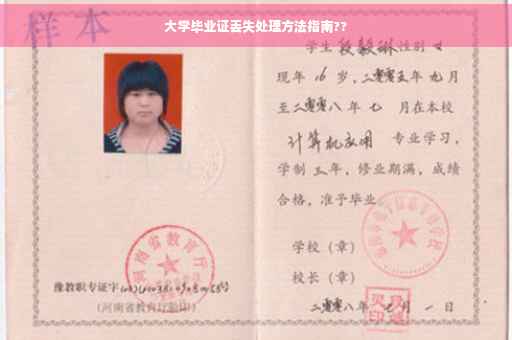 大学毕业证丢失处理方法指南??
样本
学生段毅琳性别女
现年16岁,二零零五年九月
至二零零八年七月在本校
计算机应用 专业学习,
学制三年,修业期满,成绩
合格,准予毕业
学校(章)
校长(章)
二零零八年七月一日
河南省教育厅
豫教职专证字
(河南省教育厅验印)